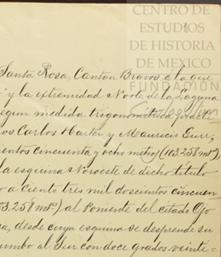 CENTRO DE
ESTUDIOS
DE HISTORIA
DE MEXICO
FUNDACIÓN
Santa Rosa, Canton Bravos á la que
y la extremidad Norte de la Laguna
segun medida trigonometrica
Carlos Hartor y Mauricio
cientos cincuenta y ocho metros (103.258 mts)
la esquina Noroeste de dicho titulo
a ciento tres mil doscientos cincuen
03.258 mts) al Poniente del citado Ojo
, desde cuya esquina se desprende su
umbo al Sur con doce grados veinte